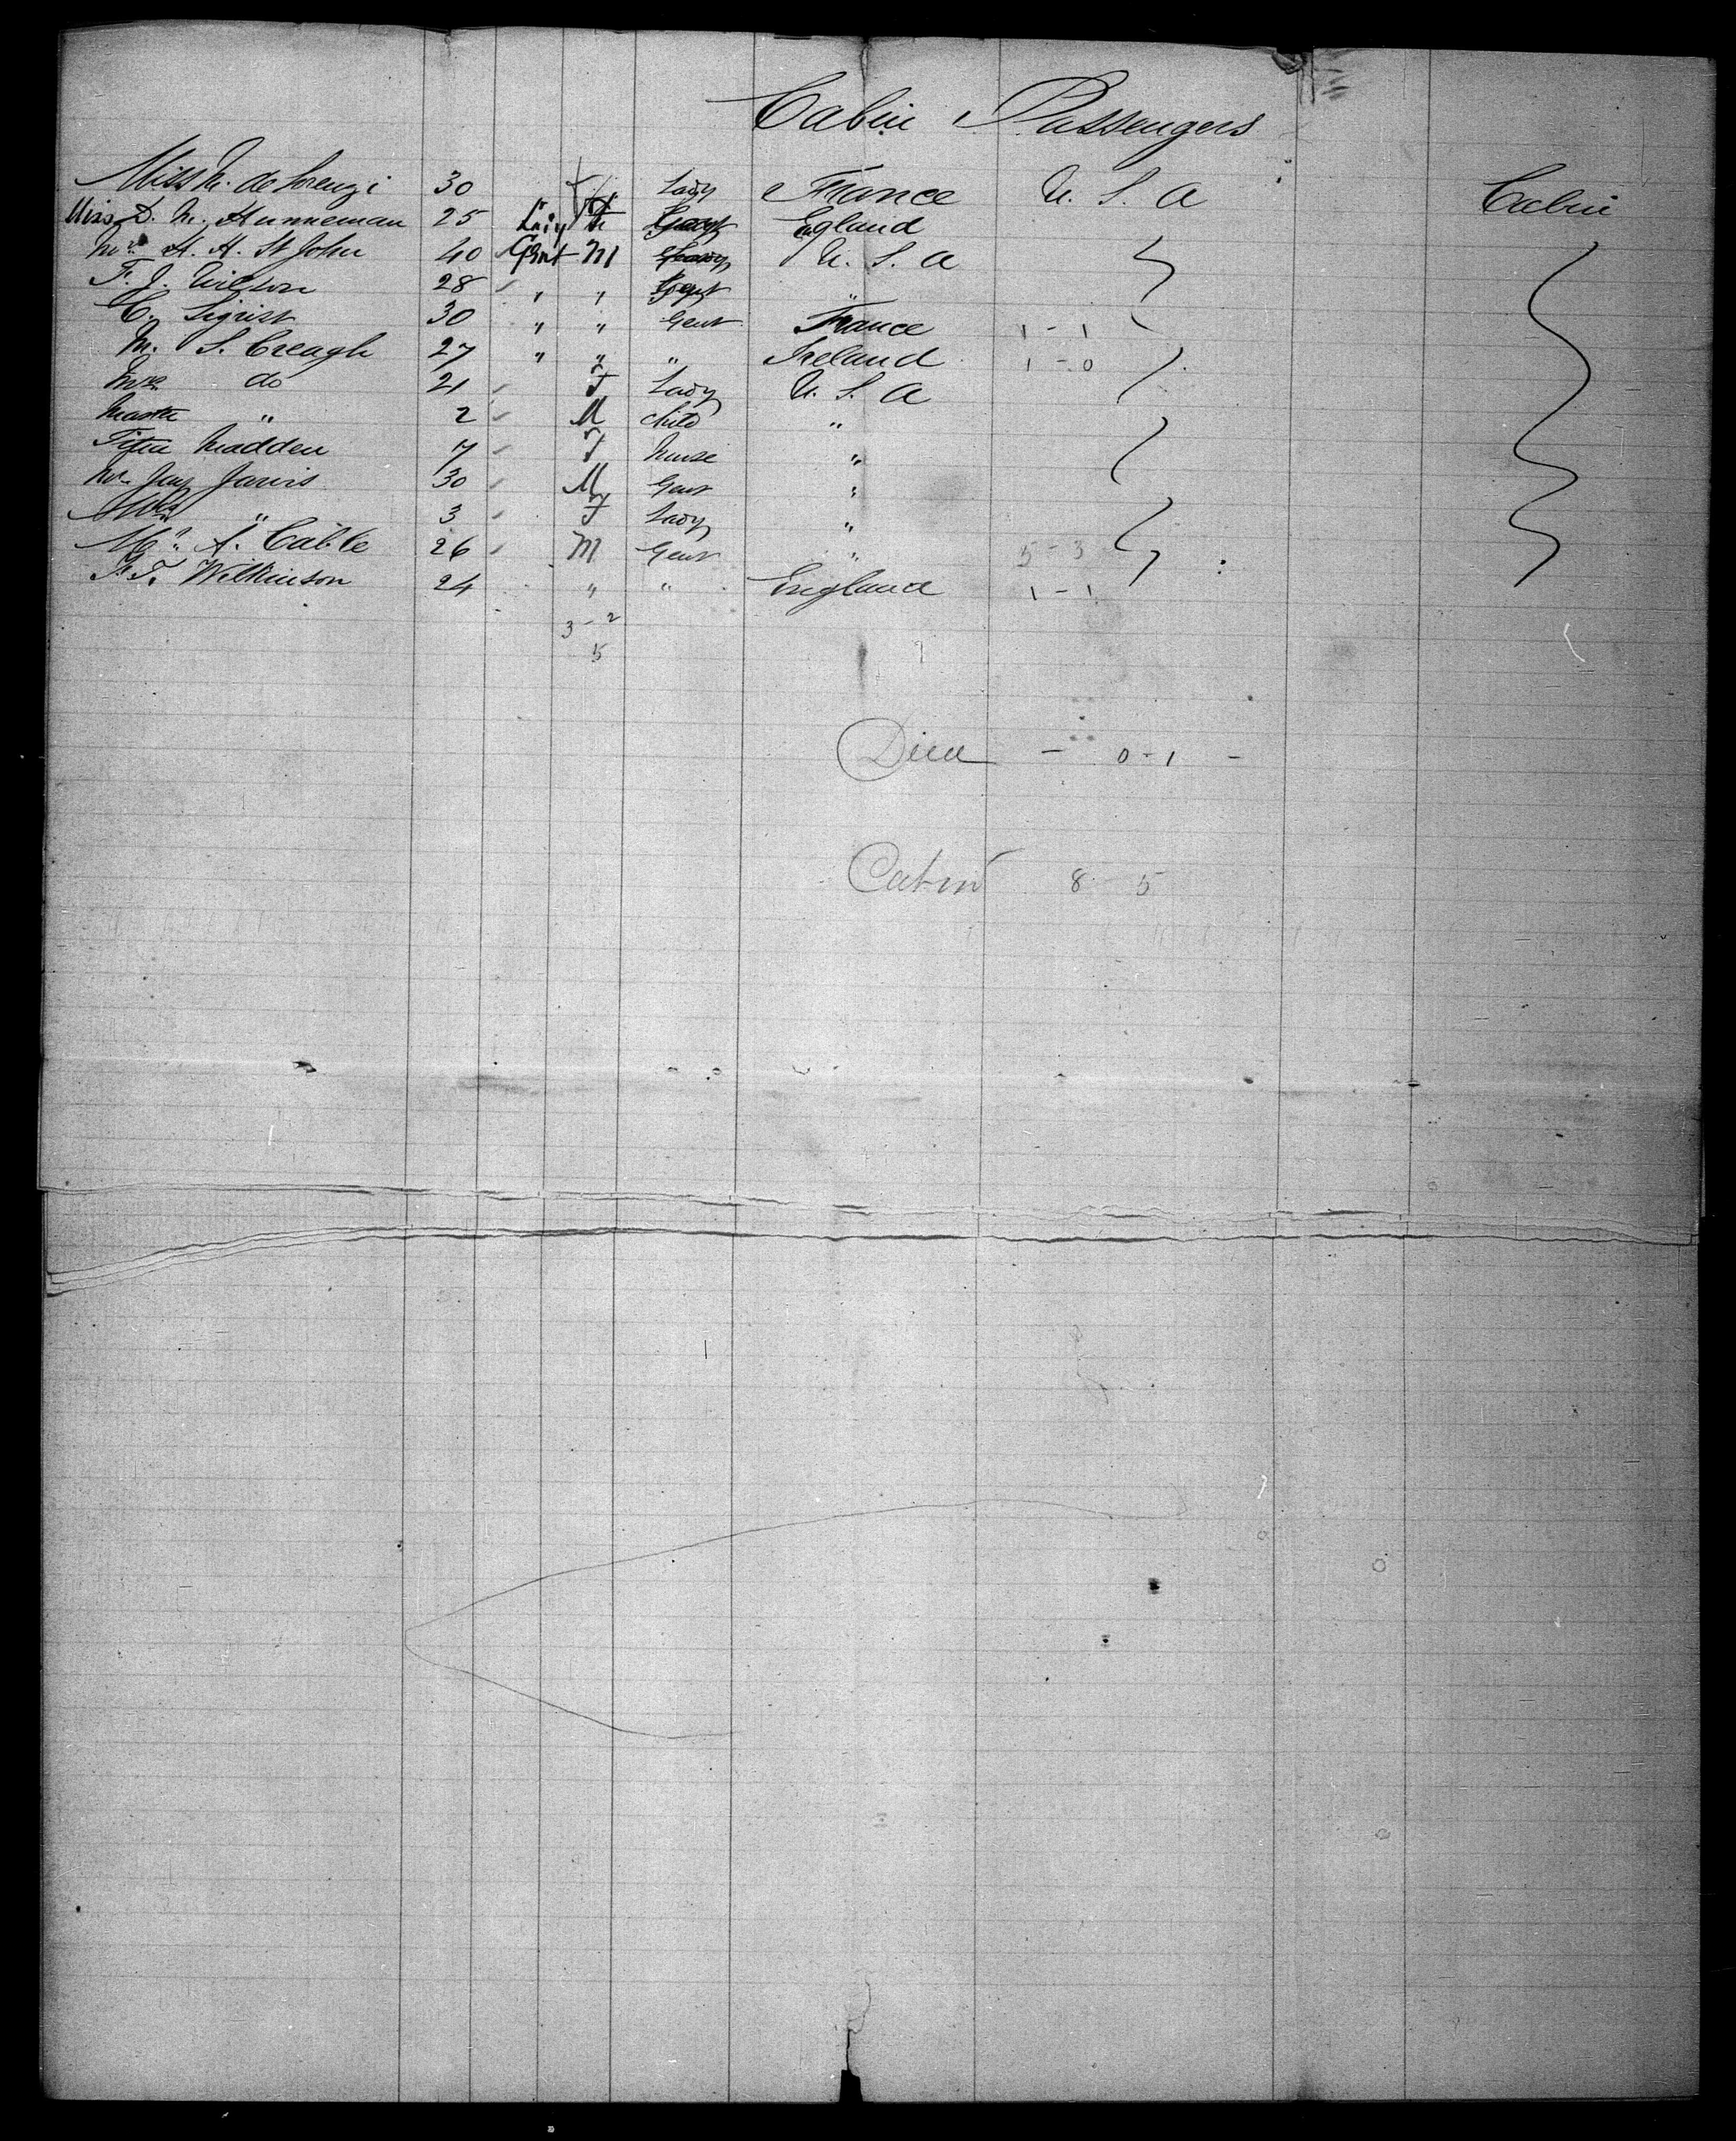 Cabin Passengers
Miss M. de Lorenzi 30 F Lady France U. S. A Cabin
Miss D. M. Hunneman 25 Lady England
Mr. A. A. St John 40 Gent M U. S. A
F. J. Wilson 28 " " "
C. Sigrist 30 " " Gent France 1 - 1
M. S. Creagh 27 " " " Ireland 1 - 0
Mrs do 21 F Lady U. S. A
Master " 2 M child "
Madden 7 F Nurse "
Mr Jarvis 30 M Gent "
" 3 F Lady "
Mr. A. Cable 26 M Gent " 5 - 3
F. Wilkinson 24 " " England 1 - 1
3 - 2
5
Died - 0 - 1 -
Cabin 8 - 5